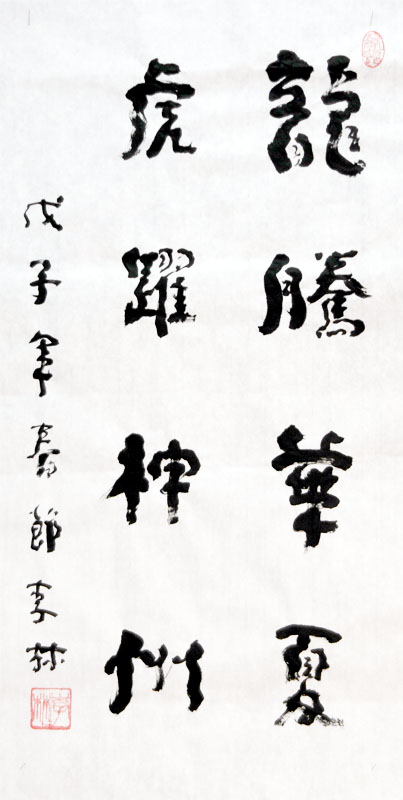 龍騰華夏
虎躍神州
戊子年春節李林